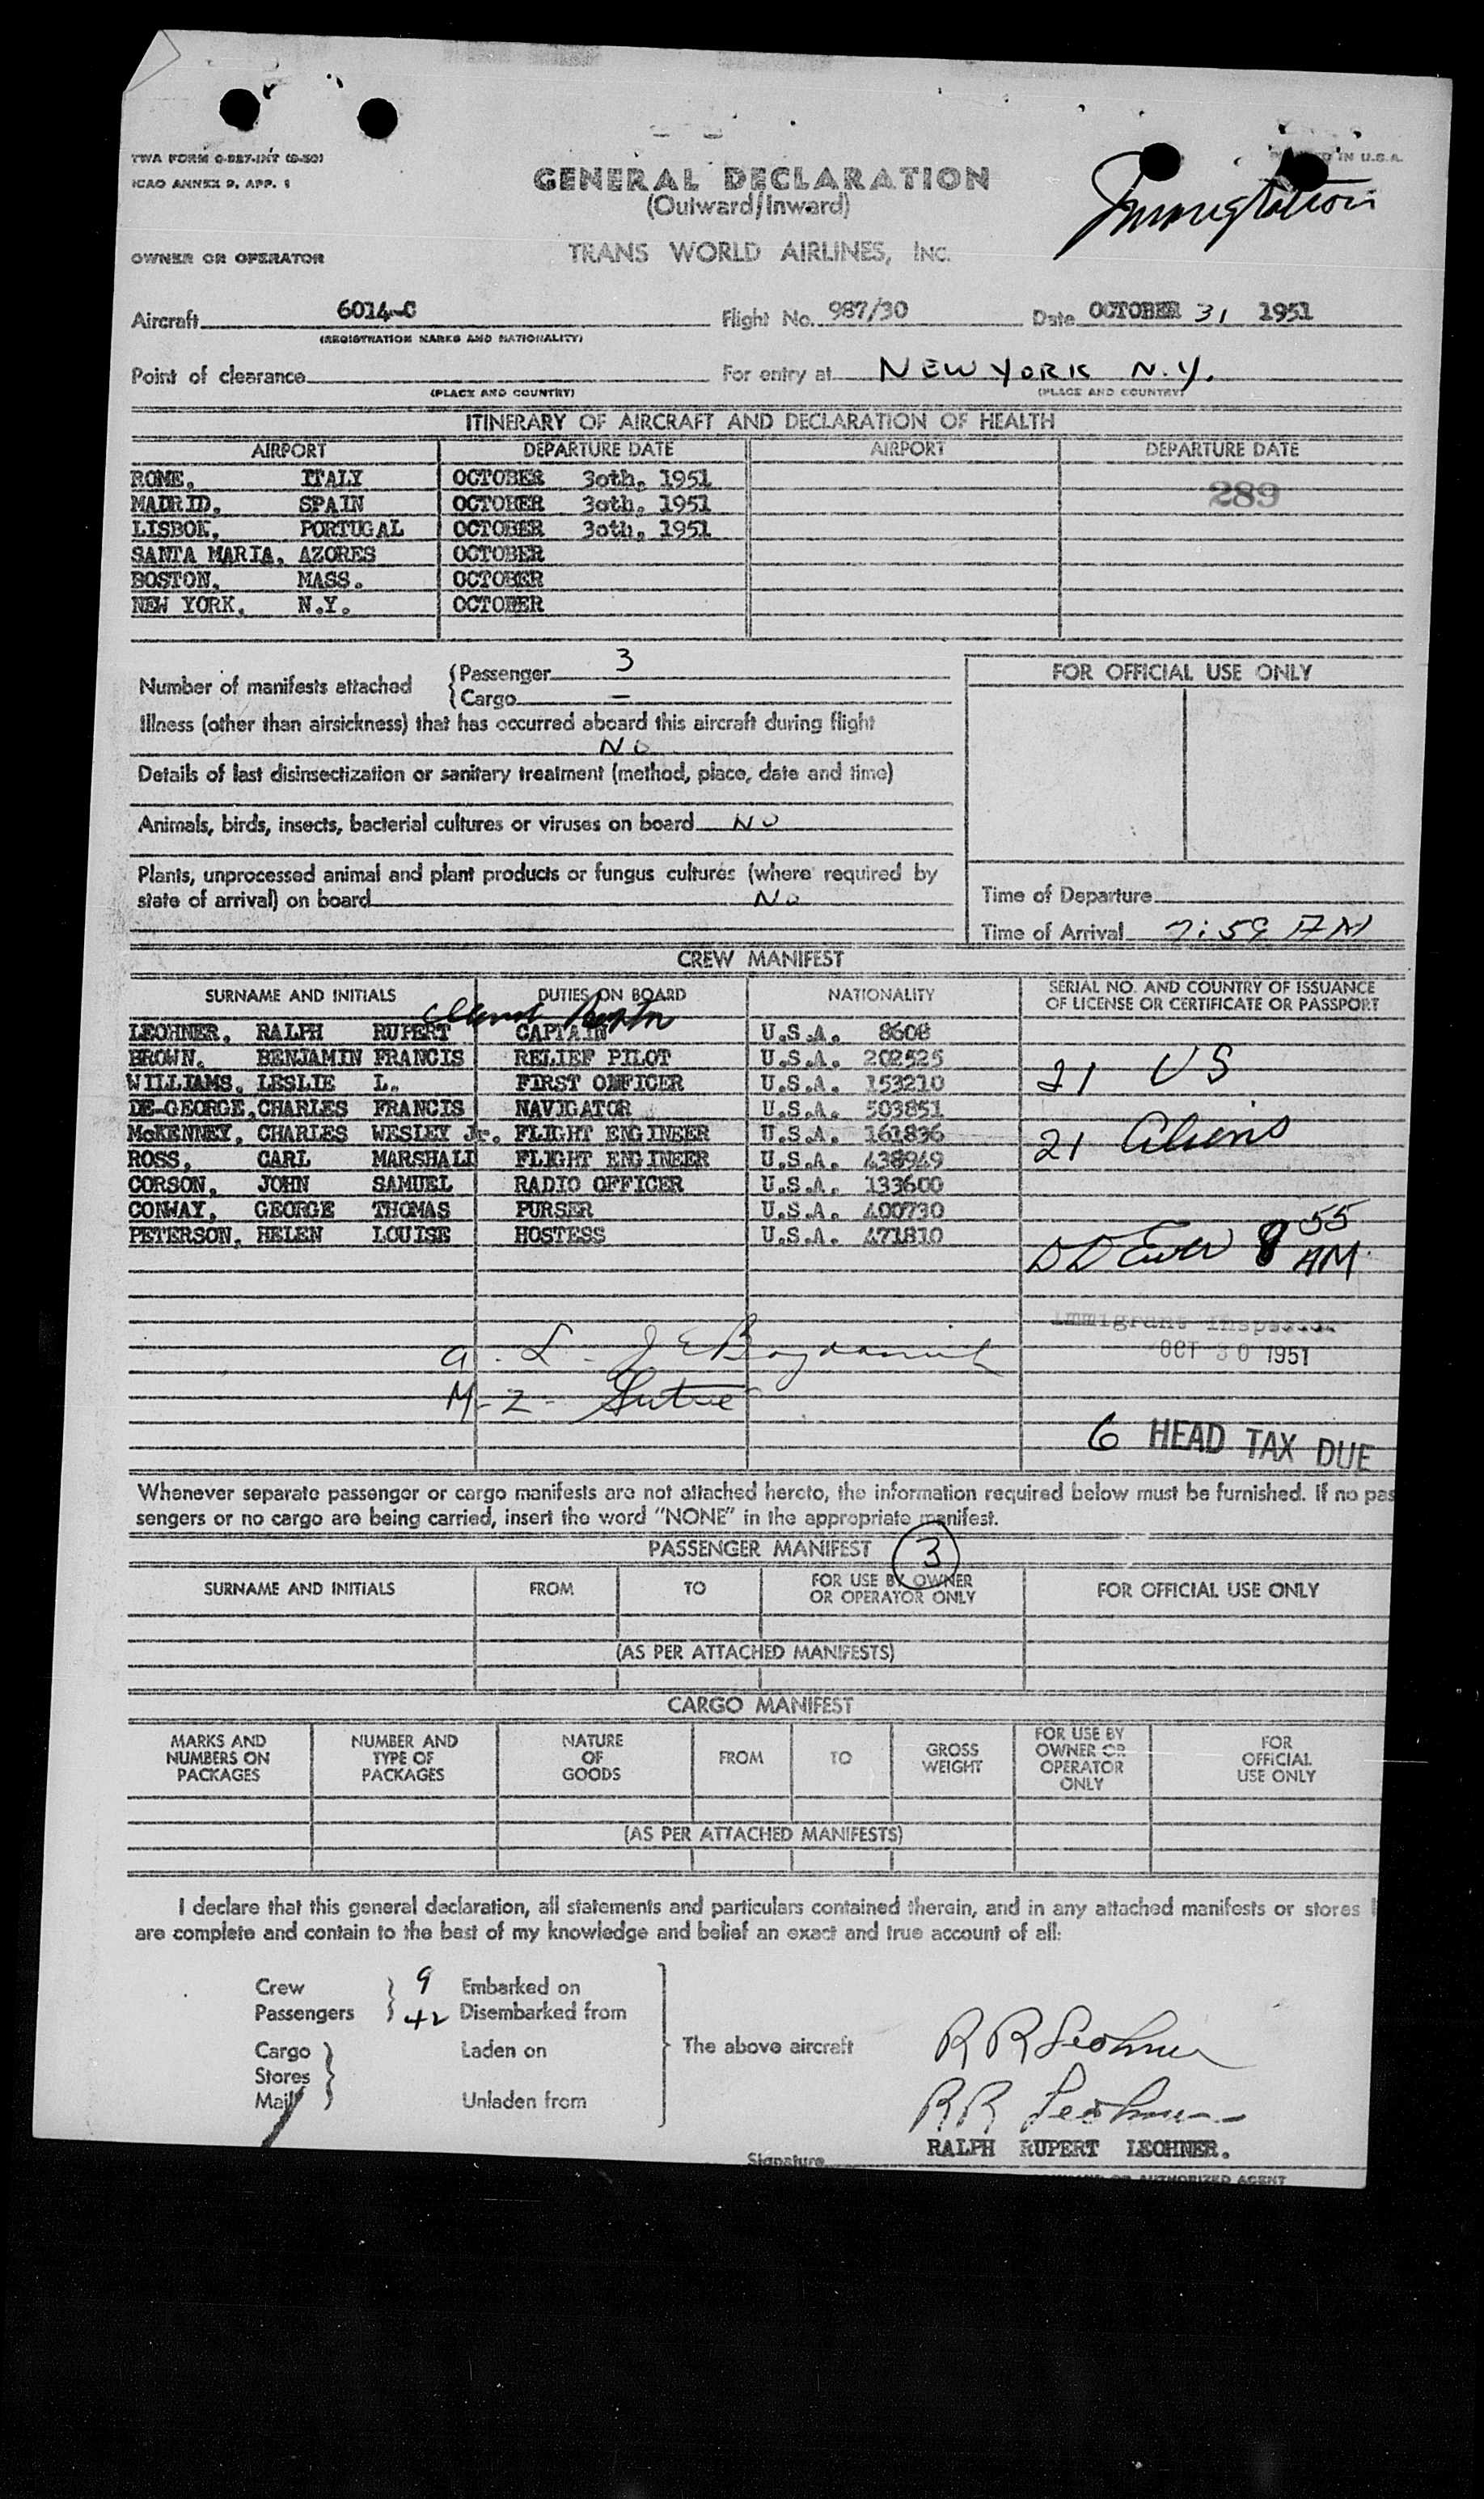 TWA FORM O-827-INT (8-50)
ICAO ANNEX 9, APP. 1
IN U.S.A.
GENERAL DECLARATION
(Outward/Inward)
Immigration
OWNER OR OPERATOR TRANS WORLD AIRLINES, INC.
Aircraft 6014-C Flight No. 987/30 Date OCTOBER 31 1951
(REGISTRATION MARKS AND NATIONALITY)
Point of clearance For entry at NEW YORK N.Y.
(PLACE AND COUNTRY) (PLACE AND COUNTRY)
ITINERARY OF AIRCRAFT AND DECLARATION OF HEALTH
AIRPORT DEPARTURE DATE AIRPORT DEPARTURE DATE
ROME, ITALY OCTOBER 3oth, 1951
289
MADRID, SPAIN OCTOBER 3oth, 1951
LISBON, PORTUGAL OCTOBER 3oth, 1951
SANTA MARIA, AZORES OCTOBER
BOSTON, MASS. OCTOBER
NEW YORK, N.Y. OCTOBER
Number of manifests attached {Passenger 3
{Cargo =
Illness (other than airsickness) that has occurred aboard this aircraft during flight
No
Details of last disinsectization or sanitary treatment (method, place, date and time)
Animals, birds, insects, bacterial cultures or viruses on board No
Plants, unprocessed animal and plant products or fungus cultures (where required by
state of arrival) on board No
FOR OFFICIAL USE ONLY
Time of Departure
Time of Arrival 7:59 AM
CREW MANIFEST
SURNAME AND INITIALS DUTIES ON BOARD NATIONALITY SERIAL NO. AND COUNTRY OF ISSUANCE
OF LICENSE OR CERTIFICATE OR PASSPORT
LEOHNER, RALPH RUPERT CAPTAIN U.S.A. 8608
BROWN, BENJAMIN FRANCIS RELIEF PILOT U.S.A. 202525
WILLIAMS, LESLIE L. FIRST OFFICER U.S.A. 153210
21 US
DE-GEORGE, CHARLES FRANCIS NAVIGATOR U.S.A. 503851
McKENNEY, CHARLES WESLEY Jr. FLIGHT ENGINEER U.S.A. 161836
21 Aliens
ROSS, CARL MARSHALL FLIGHT ENGINEER U.S.A. 438949
CORSON, JOHN SAMUEL RADIO OFFICER U.S.A. 133600
CONWAY, GEORGE THOMAS PURSER U.S.A. 400730
PETERSON, HELEN LOUISE HOSTESS U.S.A. 471810
8 55 AM
Immigrant Inspector
OCT 30 1951
6 HEAD TAX DUE
Whenever separate passenger or cargo manifests are not attached hereto, the information required below must be furnished. If no pas
sengers or no cargo are being carried, insert the word "NONE" in the appropriate manifest.
PASSENGER MANIFEST 3
SURNAME AND INITIALS FROM TO FOR USE BY OWNER
OR OPERATOR ONLY FOR OFFICIAL USE ONLY
(AS PER ATTACHED MANIFESTS)
CARGO MANIFEST
MARKS AND
NUMBERS ON
PACKAGES NUMBER AND
TYPE OF
PACKAGES NATURE
OF
GOODS FROM TO GROSS
WEIGHT FOR USE BY
OWNER OR
OPERATOR
ONLY FOR
OFFICIAL
USE ONLY
(AS PER ATTACHED MANIFESTS)
I declare that this general declaration, all statements and particulars contained therein, and in any attached manifests or stores
are complete and contain to the best of my knowledge and belief an exact and true account of all:
Crew } 9 Embarked on
Passengers } 42 Disembarked from
Cargo } Laden on
The above aircraft
Stores }
Mail } Unladen from
R R Leohner
R R Leohner
RALPH RUPERT LEOHNER.
Signature
OR AUTHORIZED AGENT